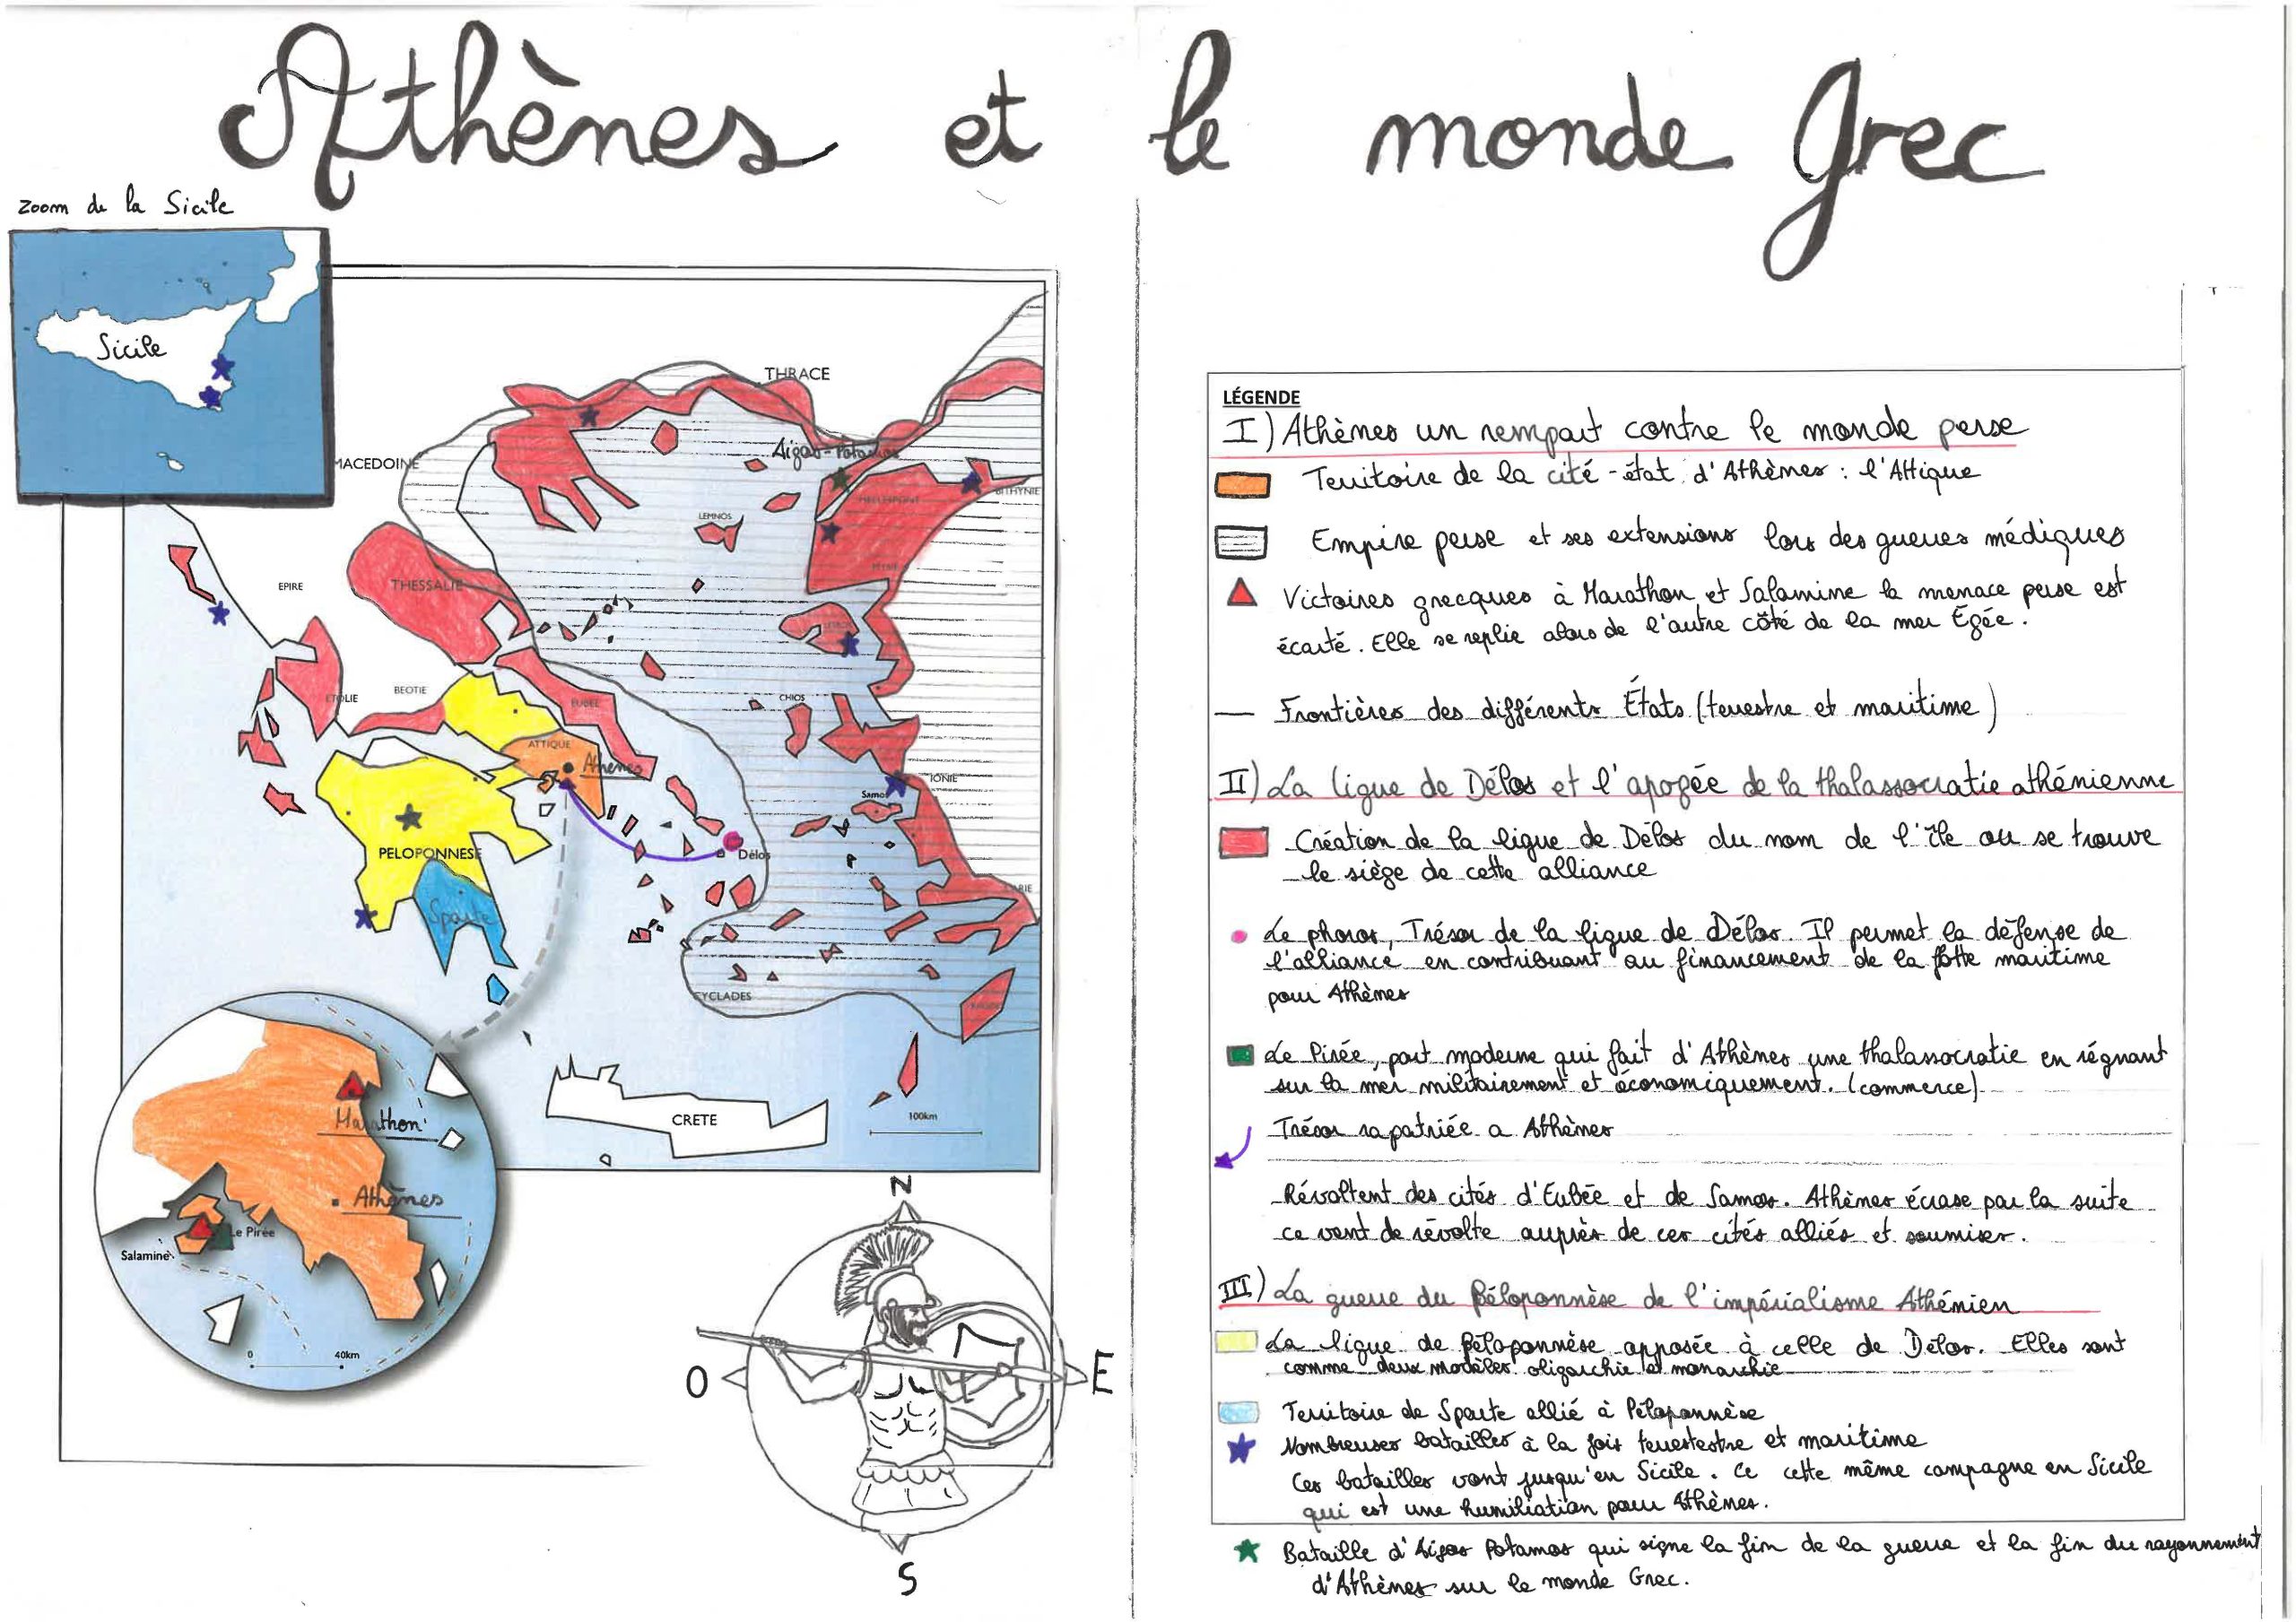 Athènes et le monde Grec
Zoom de la Sicile
Sicile
THRACE
MACEDOINE
Aigos-Potamos
HELLESPONT
BITHYNIE
LEMNOS
EPIRE
THESSALIE
LESBOS
ETOLIE
BEOTIE
EUBEE
CHIOS
ATTIQUE
Athènes
IONIE
Samos
PELOPONNESE
Délos
Sparte
CARIE
CYCLADES
CRETE
100km
Marathon
Athènes
Le Pirée
Salamine
0 40km
N
O
E
S
LÉGENDE
I) Athènes un rempart contre le monde perse
Territoire de la cité-état d'Athènes : l'Attique
Empire perse et ses extensions lors des guerres médiques
Victoires grecques à Marathon et Salamine la menace perse est
écarté. Elle se replie alors de l'autre côté de la mer Égée.
Frontières des différents États (terrestre et maritime)
II) La ligue de Délos et l'apogée de la thalassocratie athénienne
Création de la ligue de Délos du nom de l'île ou se trouve
le siège de cette alliance
Le phoros, Trésor de la ligue de Délos. Il permet la défense de
l'alliance en contribuant au financement de la flotte maritime
pour Athènes
Le Pirée, port moderne qui fait d'Athènes une thalassocratie en régnant
sur la mer militairement et économiquement. (commerce)
Trésor rapatriée a Athènes
Révoltent des cités d'Eubée et de Samos. Athènes écrase par la suite
ce vent de révolte auprès de ces cités alliés et soumises.
III) La guerre du Péloponnèse de l'impérialisme Athénien
La ligue de Péloponnèse opposée à celle de Délos. Elles sont
comme deux modèles oligarchie et monarchie
Territoire de Sparte allié à Péloponnèse
Nombreuses batailles à la fois terrestestre et maritime
Ces batailles vont jusqu'en Sicile. Ce cette même campagne en Sicile
qui est une humiliation pour Athènes.
Bataille d'Aigos Potamos qui signe la fin de la guerre et la fin du rayonnement
d'Athènes sur le monde Grec.